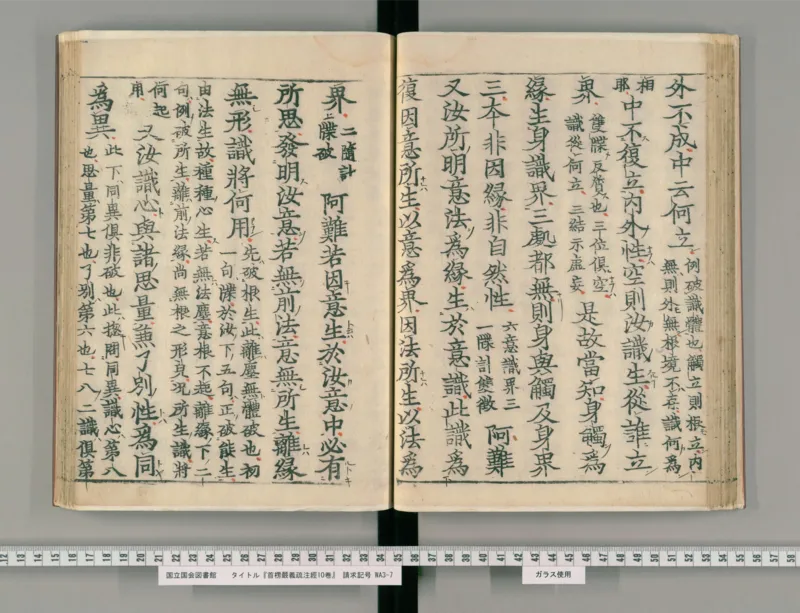 外不成中云何立
例破識體也觸立則根立内
無則外無根境不存識何為
相
耶
中不復立内外性空則汝識生從誰立
界
雙牒反質也三位俱空
識從何立三結示虛妄
是故當知身觸為
緣生身識界三處都無則身與觸及身界
三本非因緣非自然性
六意識界三
一牒計雙徵
阿難
又汝所明意法為緣生於意識此識為
復因意所生以意為界因法所生以法為
界
二隨計
牒破
阿難若因意生於汝意中必有
所思發明汝意若無前法意無所生離緣
無形識將何用
先破根生此離塵無體破也初
一句牒於汝下五句正破能生
由法生故種種心生若無法塵意根不起離緣下二
句例破所生離前法緣尚無根之形身况所生識將
何起
用
又汝識心與諸思量兼了別性為同
為異
此下同異俱非破也此據問同異識心第八
也思量第七也了別第六也七八二識俱第
国立国会図書館 タイトル『首楞嚴義疏注経10巻』 請求記号 WA3-7
ガラス使用